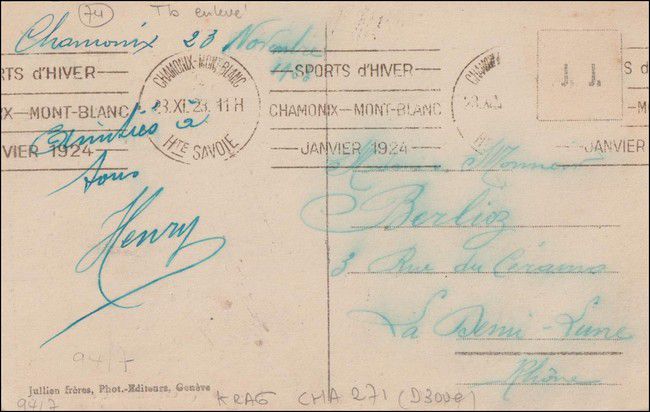 74 Tb enlevé
Chamonix 23 Novembre
SPORTS d'HIVER
CHAMONIX-MONT-BLANC
JANVIER 1924
CHAMONIX-MONT-BLANC
23.XI.23. 11H
Hte SAVOIE
ORTS d'HIVER
NIX-MONT-BLANC
VIER 1924
Amitiés à
tous
Henry
SPORTS
CHAMONIX
JANVIER
J. J.
Berlioz
3 Rue du
La Demi-Lune
Rhône
94/7
Jullien frères, Phot.-Editeurs, Genève
94/7
KRAG CHA 271 (D300e)